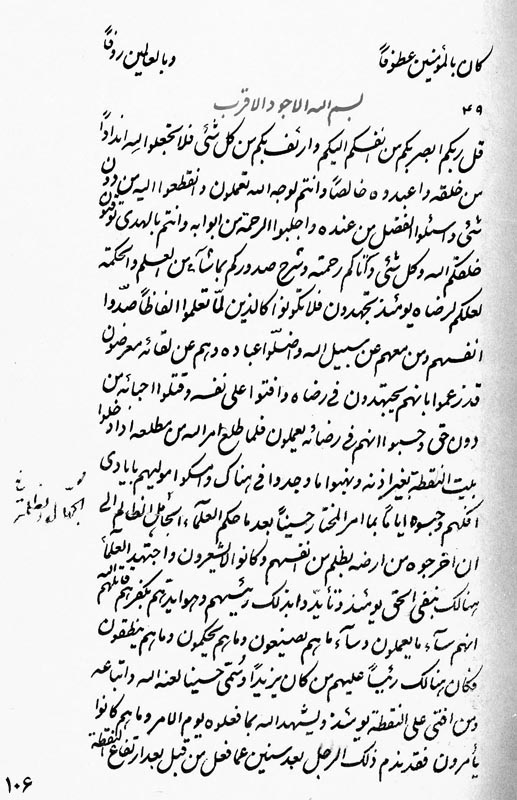 كان بالمؤمنين عطوفاً وبالعالمين رؤفاً
٤٩ بسم الله الاجود الاقرب
قل ربكم ابصر بكم من انفسكم اليكم وارئف بكم من كل شئ فلا تجعلوا لله انداداً
من خلقه واعبدوه خالصاً وانتم لوجه الله تعملون وانقطعوا اليه من دون
شئ واسئلوا الفضل من عنده واجلبوا الرحمة من ابوابه وانتم بالهدى توقنون
خلقكم الله وكل شئ وآتاكم رحمته وشرح صدوركم بما شآء من العلم والحكمة
لعلكم لرضاه يومئذ تجهدون فلا تكونوا كالذين لمّا تعلموا الفاظاً صدّوا
انفسهم ومن معهم عن سبيل الله واضلّوا عباده وهم عن لقائه معرضون
قد زعموا بانهم يجتهدون في رضاه وافتوا على نفسه وقتلوا احبائه من
دون حق وحسبوا انهم في رضائه يعملون فلما طلع امر الله من مطلعه اذاً دخلوا
بيت النقطة بغير اذنه ونهبوا ما وجدوا في هناك ومسكوا موليهم بايادى
افكهم وحبسوه اياماً بما امر المختار حسيناً بعد ما حكم العلمآء الجاهل الظالم الى
ان اخرجوه من ارضه بظلم من انفسهم وكانوا لا يشعرون واجتهد العلمآء
هنالك بنفي الحق يومئذ وتأيّدوا بذلك رئيسهم وهو ايدتهم بكفرهم قاتلهم الله
انهم سآء ما يعملون وسآء ما هم يصنعون وما هم يحكمون وما هم ينطقون
فكان هنالك رئيساً عليهم من كان يزيداً وسُمّى حسيناً لعنه الله واتباعه
ومن افتى على النقطة يومئذ وليشهد الله بما فعلوه يوم الامر وما هم كانوا
يأمرون فقد ندم ذلك الرجل بعد سنين عما فعل من قبل بعد ارتفاع النقطة
١٠٦